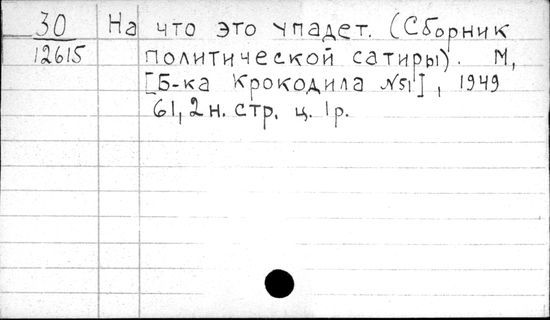 30 На что это упадет. (Сборник
12615 политической сатиры). М,
[Б-ка Крокодила №51], 1949
61, 2 н. стр. ц. 1 р.